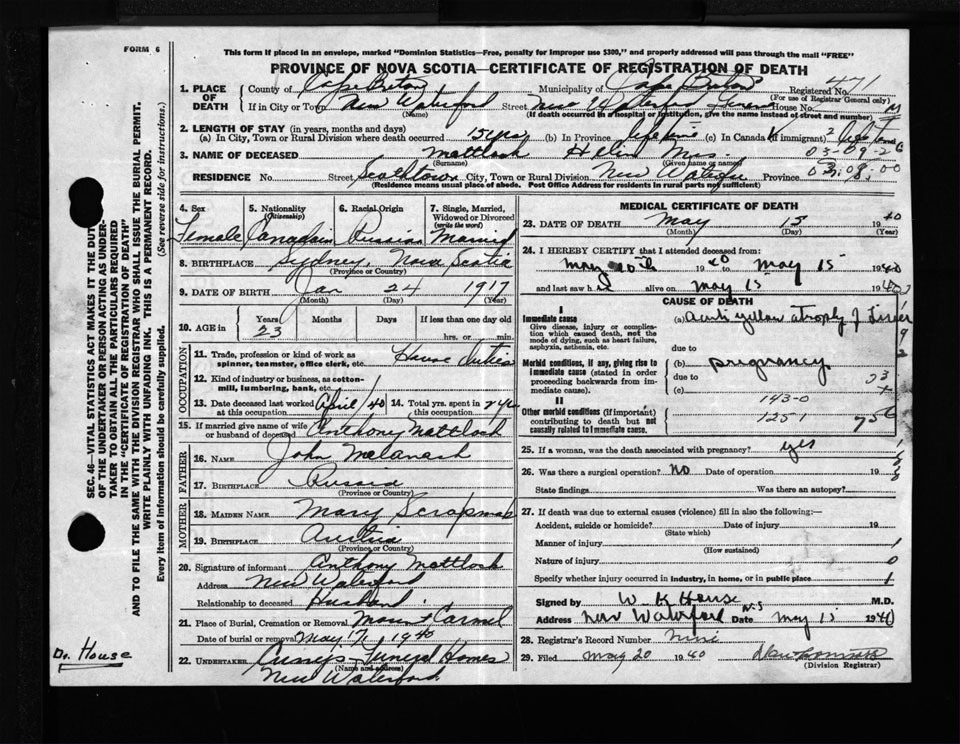 FORM 6
This form if placed in an envelope, marked "Dominion Statistics—Free, penalty for improper use $300," and properly addressed will pass through the mail "FREE"
PROVINCE OF NOVA SCOTIA—CERTIFICATE OF REGISTRATION OF DEATH
SEC. 46—VITAL STATISTICS ACT MAKES IT THE DUTY
OF THE UNDERTAKER OR PERSON ACTING AS UNDERTAKER TO OBTAIN ALL THE PARTICULARS REQUIRED
IN THE "CERTIFICATE OF REGISTRATION OF DEATH"
AND TO FILE THE SAME WITH THE DIVISION REGISTRAR WHO SHALL ISSUE THE BURIAL PERMIT.
WRITE PLAINLY WITH UNFADING INK. THIS IS A PERMANENT RECORD.
Every item of information should be carefully supplied. (See reverse side for instructions.)
Dr. House
1. PLACE OF DEATH County of Cape Breton Municipality of Cape Breton Registered No. 471
(For use of Registrar General only)
If in City or Town New Waterford Street New Waterford House No.
(Name) (If death occurred in a hospital or institution, give the name instead of street and number)
2. LENGTH OF STAY (in years, months and days)
(a) In City, Town or Rural Division where death occurred 15 years (b) In Province (c) In Canada (if immigrant)
3. NAME OF DECEASED Mattlosh Helen Mrs 03-09-26
(Surname) (Given name or names)
RESIDENCE No. Street Scotchtown City, Town or Rural Division New Waterford Province 03:08:00
(Residence means usual place of abode. Post Office Address for residents in rural parts not sufficient)
4. Sex Female
5. Nationality (Citizenship) Canadian
6. Racial Origin Russian
7. Single, Married, Widowed or Divorced (write the word) Married
8. BIRTHPLACE Sydney, Nova Scotia
(Province or Country)
9. DATE OF BIRTH Jan 24 1917
(Month) (Day) (Year)
10. AGE IN Years 23 Months Days If less than one day old
hrs. or min.
OCCUPATION
11. Trade, profession or kind of work as spinner, teamster, office clerk, etc. House duties
12. Kind of industry or business, as cotton-mill, lumbering, bank, etc.
13. Date deceased last worked at this occupation April/40 14. Total yrs. spent in this occupation
15. If married give name of wife or husband of deceased Anthony Mattlosh
FATHER
16. NAME John
17. BIRTHPLACE Russia
(Province or Country)
MOTHER
18. MAIDEN NAME Mary
19. BIRTHPLACE Austria
(Province or Country)
20. Signature of informant Anthony Mattlosh
Address New Waterford
Relationship to deceased Husband.
21. Place of Burial, Cremation or Removal Mount Carmel
Date of burial or removal May 17, 1940
22. UNDERTAKER Curry's Funeral Homes
(Name and address)
New Waterford
MEDICAL CERTIFICATE OF DEATH
23. DATE OF DEATH May 15 1940
(Month) (Day) (Year)
24. I HEREBY CERTIFY that I attended deceased from:
May 10th 1940 to May 15 1940
and last saw h alive on May 15 1940
CAUSE OF DEATH
I
Immediate cause (a) Acute yellow atrophy of liver
Give disease, injury or complication which caused death, not the mode of dying, such as heart failure, asphyxia, asthenia, etc.
due to
Morbid conditions, if any, giving rise to immediate cause (stated in order proceeding backwards from immediate cause). (b) pregnancy
due to
(c)
II
143-0
Other morbid conditions (if important) contributing to death but not causally related to immediate cause.
125-1
25. If a woman, was the death associated with pregnancy? yes
26. Was there a surgical operation? No Date of operation 19
State findings Was there an autopsy?
27. If death was due to external causes (violence) fill in also the following:—
Accident, suicide or homicide? Date of injury 19
(State which)
Manner of injury
(How sustained)
Nature of injury
Specify whether injury occurred in industry, in home, or in public place
Signed by W K House M.D.
Address New Waterford N.S Date May 15 1940
28. Registrar's Record Number
29. Filed May 20 1940
(Division Registrar)